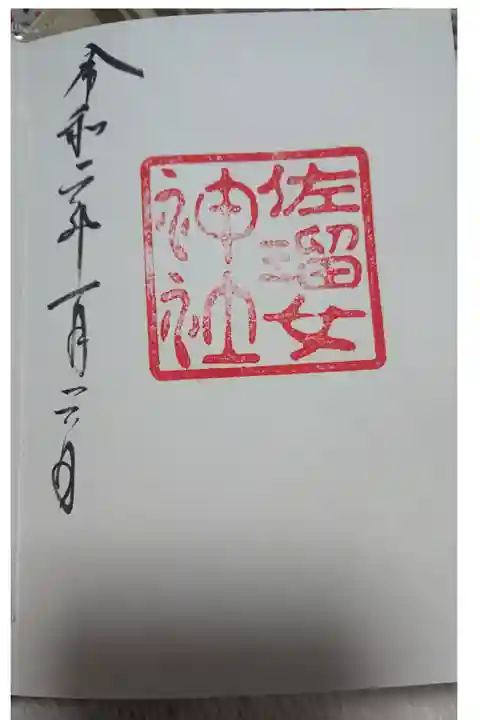 佐瑠女
神社
令和二年一月二日